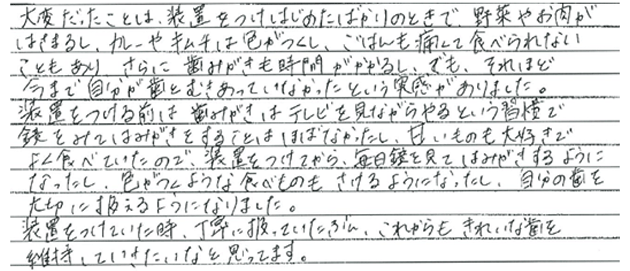 大変だったことは、装置をつけはじめたばかりのときで、野菜やお肉が
はさまるし、カレーやキムチは色がつくし、ごはんも痛くて食べられない
こともあり、さらに歯みがきも時間がかかるし、でも、それほど
今まで自分が歯とむきあっていなかったという実感がありました。
装置をつける前は歯みがきはテレビを見ながらやるという習慣で
鏡をみてはみがきをすることはほぼなかったし、甘いものも大好きで
よく食べていたので、装置をつけてから、毎日鏡を見てはみがきするように
なったし、色がつくような食べものもさけるようになったし、自分の歯を
大切に扱えるようになりました。
装置をつけていた時、丁寧に扱っていたぶん、これからもきれいな歯を
維持していきたいなと思ってます。